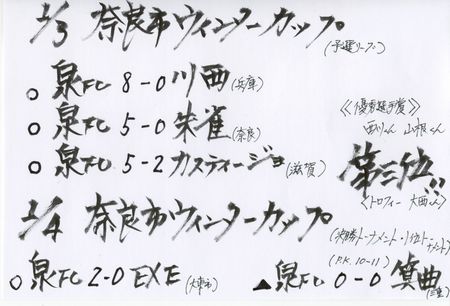 1/3 奈良市ウィンターカップ(予選リーグ)
○ 泉FC 8-0 川西(兵庫)
○ 泉FC 5-0 朱雀(奈良)
○ 泉FC 5-2 カスティージョ(滋賀)
《優秀選手賞》
西川くん 山根くん
第三位!!
<トロフィー 大西くん>
1/4 奈良市ウィンターカップ
(決勝トーナメント・1位トーナメント)
○ 泉FC 2-0 EXE
(P.K. 10-11)
▲ 泉FC 0-0 箕曲(三重)